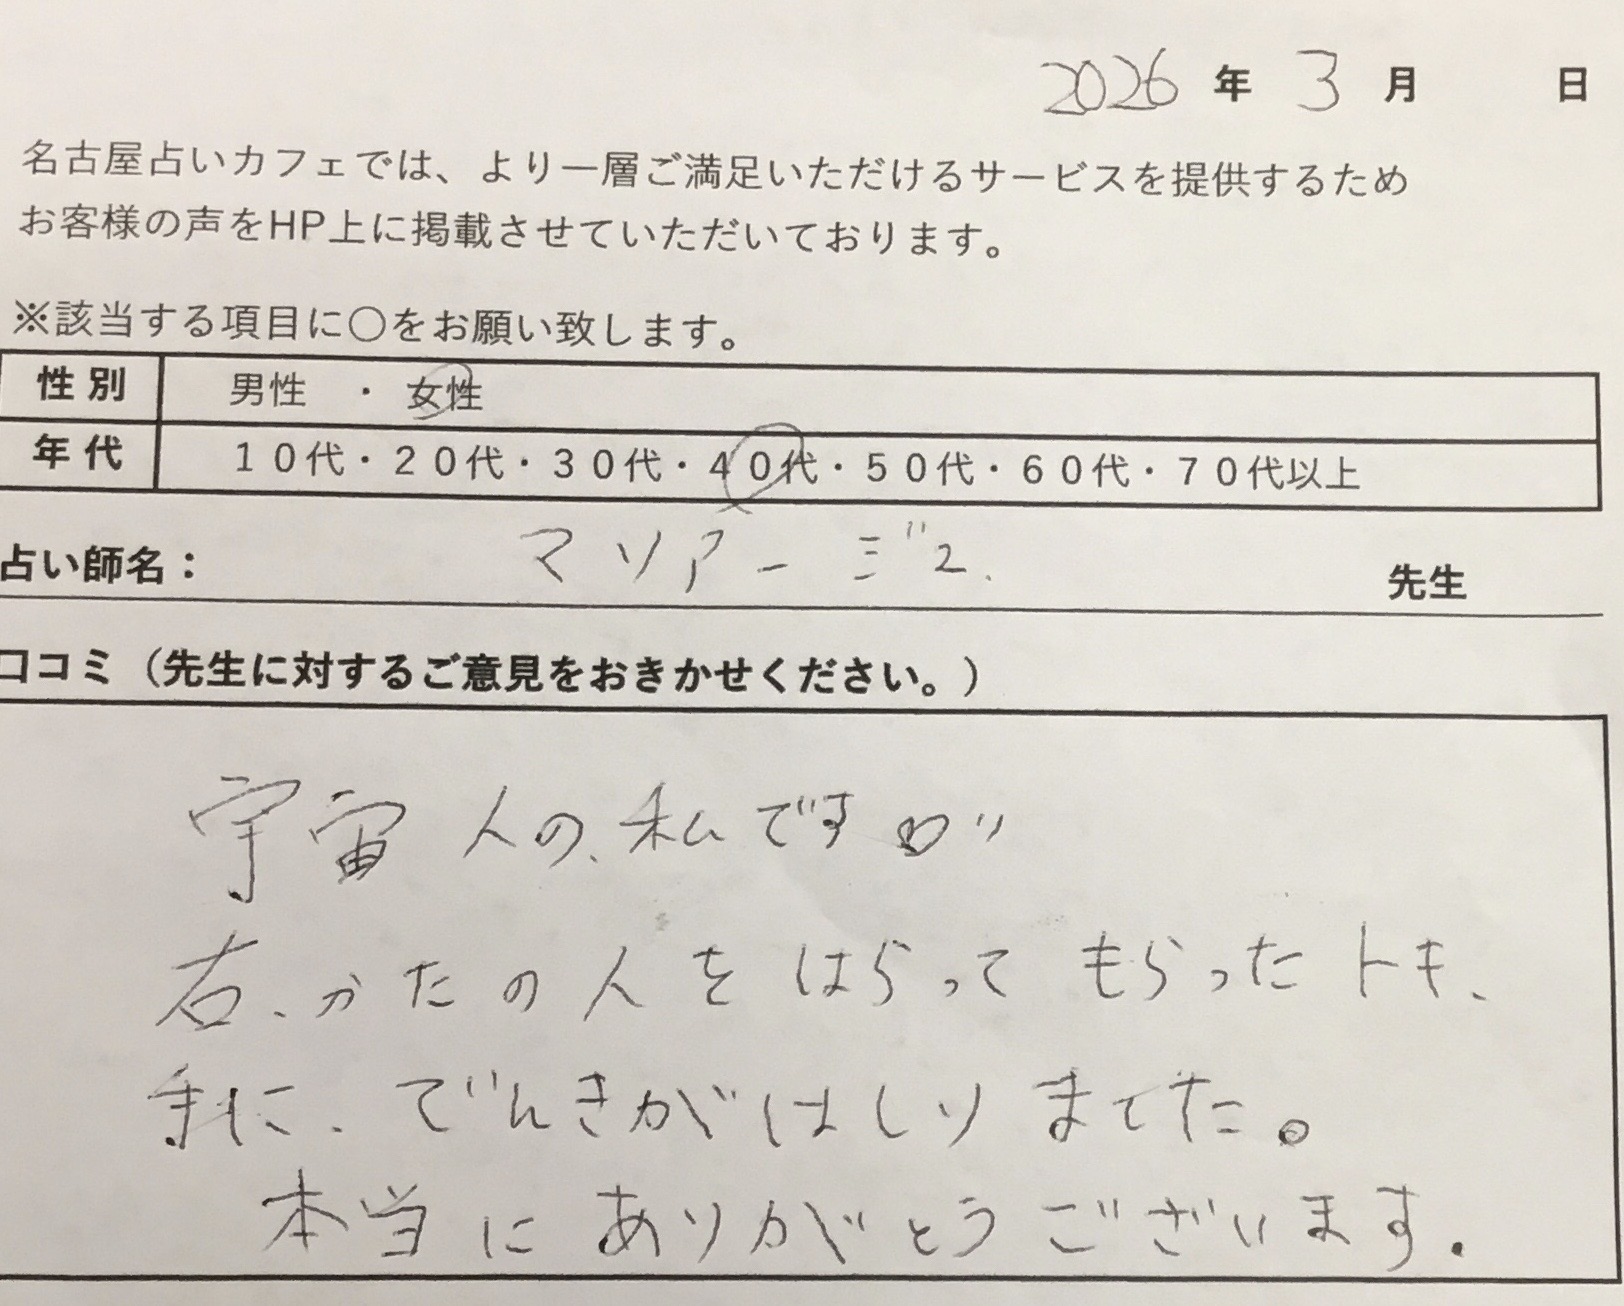 2026 年 3 月 日
名古屋占いカフェでは、より一層ご満足いただけるサービスを提供するため
お客様の声をHP上に掲載させていただいております。
※該当する項目に〇をお願い致します。
性別 男性 ・ 女性
年代 10代・20代・30代・40代・50代・60代・70代以上
占い師名： マリアージュ 先生
口コミ（先生に対するご意見をおきかせください。）
宇宙人の、私です
右、かたの人をはらってもらったトキ、
手に、でんきがはしりました。
本当にありがとうございます.